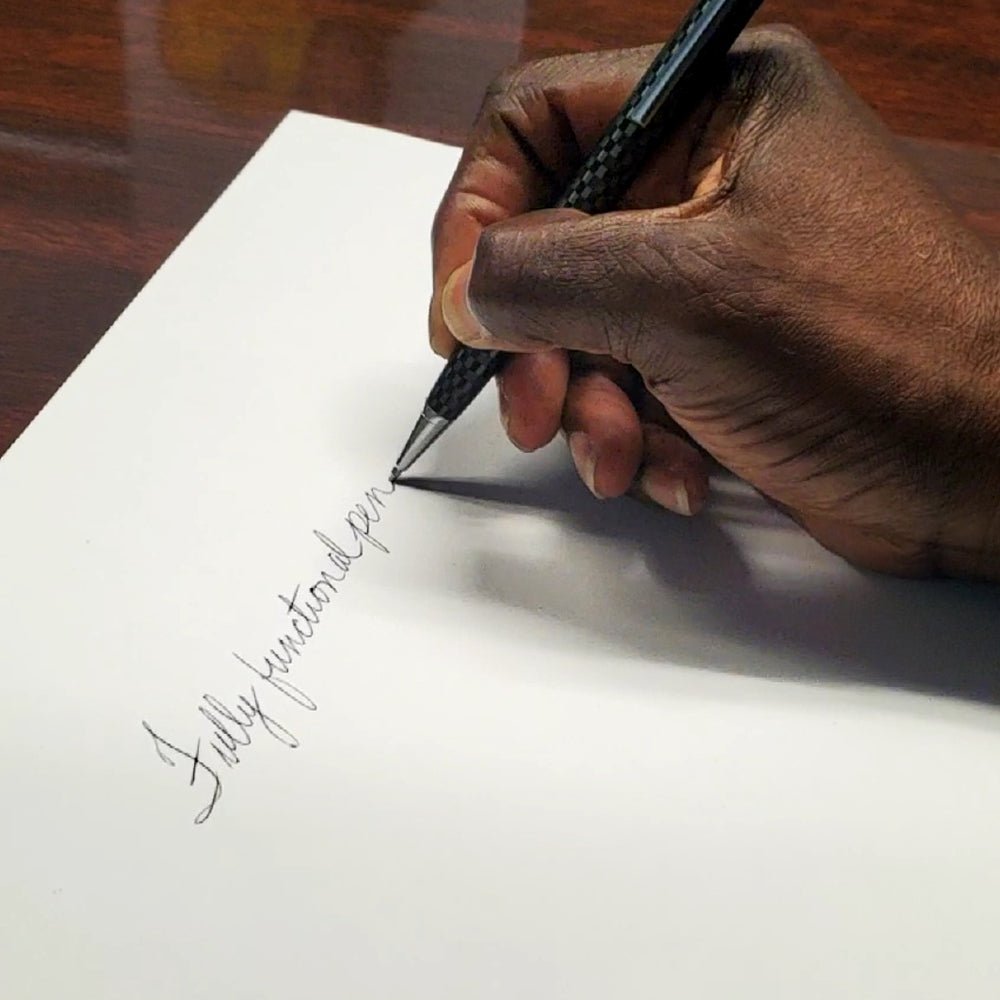 Fully functional pen